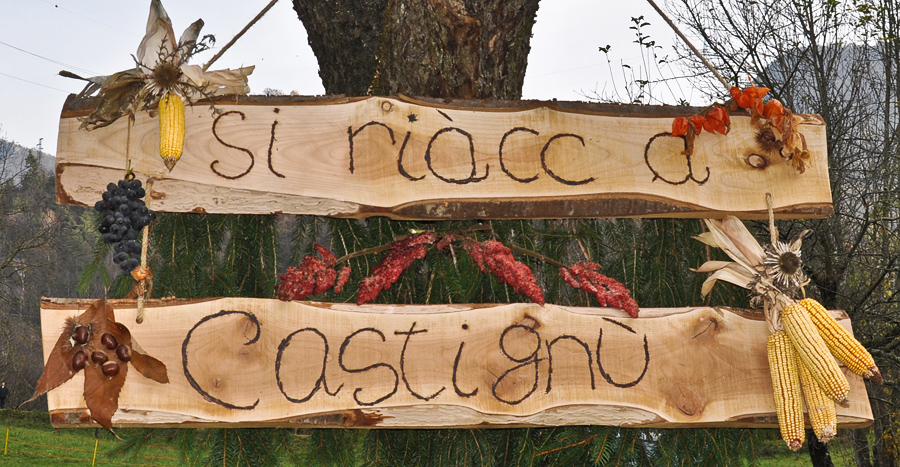 si riàcc a
Castignù